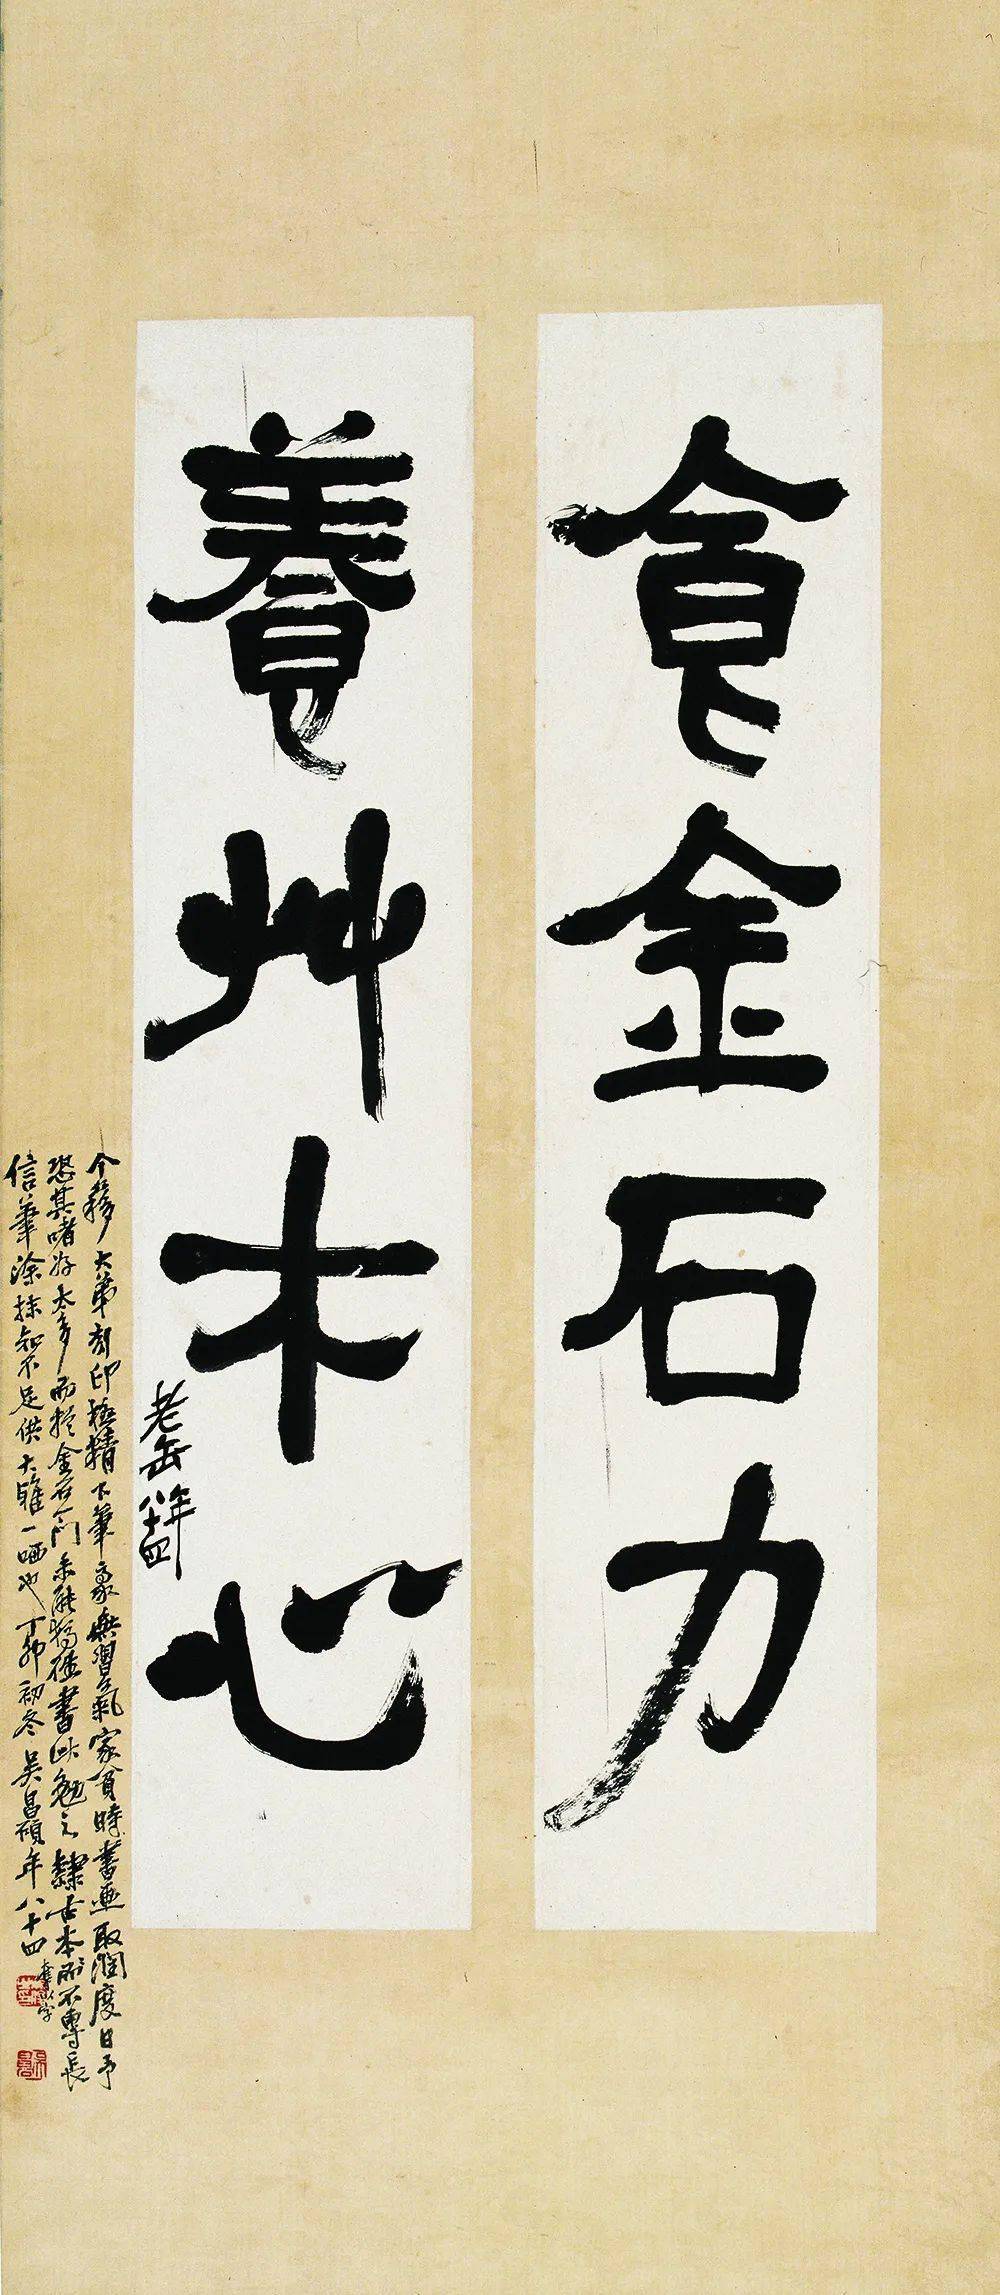 食金石力
養艸木心
老缶年八十四
个簃大弟刻印極精下筆豪無習氣家貧時書画取潤度日予
恐其嗜好太多而於金石門未能猛進書此勉之隸古本所不專長
信筆涂抹知不足供大雅一哂也丁卯初冬吳昌碩年八十四